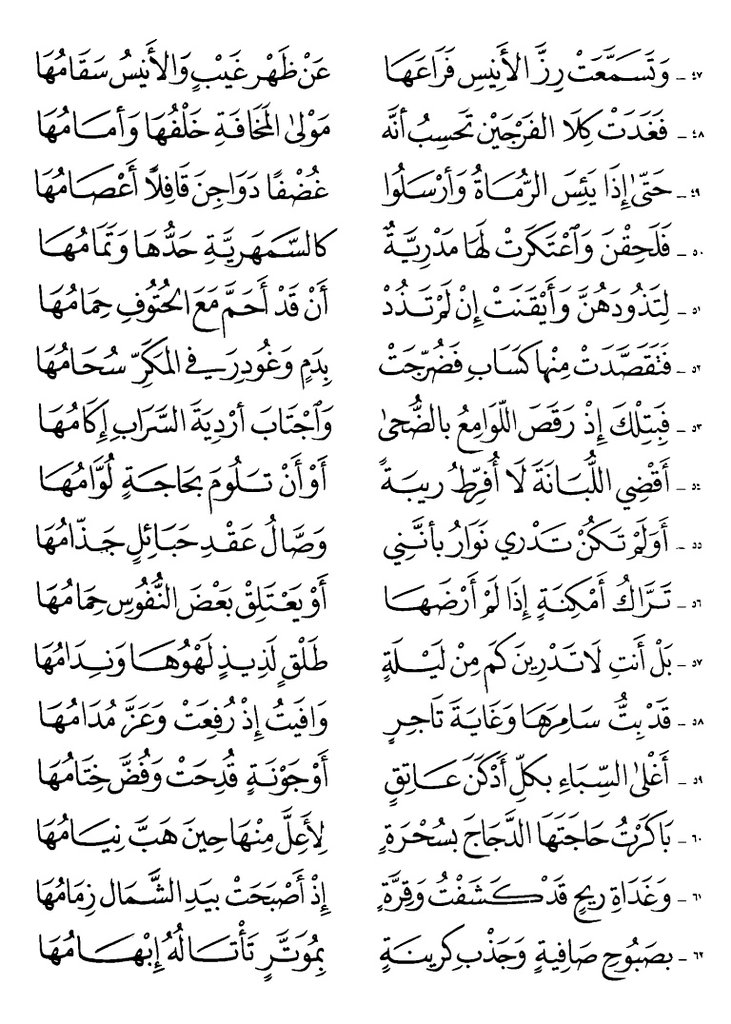 ٤٧ - وَتَسَمَّعَتْ رِزَّ الأَنِيسِ فَرَاعَهَا عَنْ ظَهْرِ غَيْبٍ وَالأَنِيسُ سَقَامُهَا
٤٨ - فَغَدَتْ كِلَا الفَرْجَيْنِ تَحْسِبُ أنَّه مَوْلىٰ المَخَافَةِ خَلْفُهَا وَأمَامُهَا
٤٩ - حَتّىٰ إِذَا يَئِسَ الرُّمَاةُ وَأرْسَلُوا غُضْفًا دَوَاجِنَ قَافِلًا أَعْصَامُهَا
٥٠ - فَلَحِقْنَ وَٱعْتَكَرَتْ لَهَا مَدْرِيَّةٌ كالسَّمْهَرِيَّةِ حَدُّهَا وَتَمَامُهَا
٥١ - لِتَذُودَهُنَّ وَأَيْقَنَتْ إِنْ لَمْ تَذُدْ أَنْ قَدْ أَحَمَّ مَعَ الحُتُوفِ حِمَامُهَا
٥٢ - فَتَقَصَّدَتْ مِنْها كَسَابِ فَضُرِّجَتْ بِدَمٍ وَغُودِرَ في المَكَرِّ سُحَامُهَا
٥٣ - فَبِتِلْكَ إِذْ رَقَصَ اللّوَامِعُ بالضُّحىٰ وَٱجْتَابَ أرْدِيَةَ السَّرَابِ إِكَامُهَا
٥٤ - أَقْضِي اللُّبَانَةَ لَا أُفَرِّطُ رِيبَةً أَوْ أَنْ تَلُومَ بِحَاجَةٍ لُوَّامُهَا
٥٥ - أَوَلَمْ تَكُنْ تَدْرِي نَوَارُ بأنَّنِي وَصَّالُ عَقْدِ حَبَائِلٍ جَذّامُهَا
٥٦ - تَرَّاكُ أَمْكِنَةٍ إِذَا لَمْ أَرْضَهَا أَوْ يَعْتَلِقْ بَعْضَ النُّفُوسِ حِمَامُهَا
٥٧ - بَلْ أَنتِ لَا تَدْرِينَ كَم مِنْ لَيْلَةٍ طَلْقٍ لَذِيذٍ لَهْوُهَا وَنِدَامُهَا
٥٨ - قَدْ بِتُّ سَامِرَهَا وَغَايَةَ تَاجِرٍ وَافَيْتُ إِذْ رُفِعَتْ وَعَزَّ مُدَامُهَا
٥٩ - أَغْلى السِّبَاءِ بكلّ أَدْكَنَ عَاتِقٍ أَوْ جَوْنَةٍ قُدِحَتْ وَفُضَّ خِتَامُهَا
٦٠ - بَاكَرْتُ حَاجَتَهَا الدَّجَاجَ بِسُحْرَةٍ لِأَعِلَّ مِنْهَا حِينَ هَبَّ نِيَامُهَا
٦١ - وَغَدَاةِ رِيحٍ قَدْ كَشَفْتُ وَقِرَّةٍ إِذْ أَصْبَحَتْ بِيَدِ الشَّمَالِ زِمَامُهَا
٦٢ - بصَبُوحِ صَافِيةٍ وَجَذْبِ كرِينَةٍ بِمُوَتَّرٍ تَأْتَالُهُ إِبْهَامُهَا